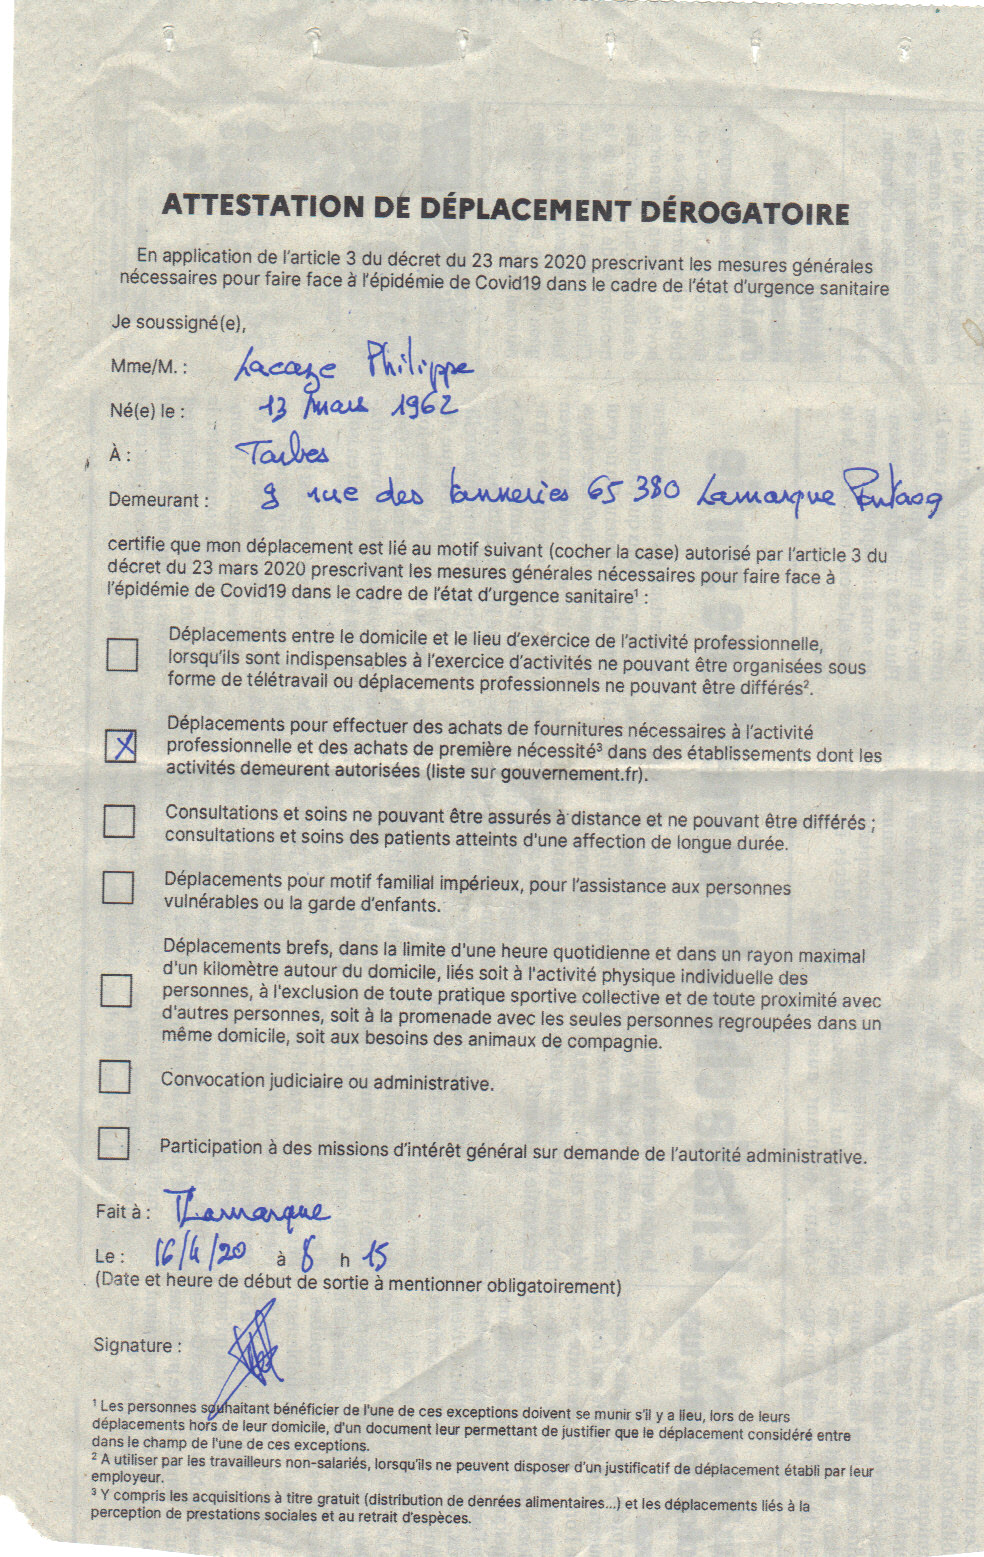 ATTESTATION DE DÉPLACEMENT DÉROGATOIRE
En application de l'article 3 du décret du 23 mars 2020 prescrivant les mesures générales
nécessaires pour faire face à l'épidémie de Covid19 dans le cadre de l'état d'urgence sanitaire
Je soussigné(e),
Mme/M. : Lacaze Philippe
Né(e) le : 13 mars 1962
À : Tarbes
Demeurant : 9 rue des tanneries 65 380 Lamarque Pontacq
certifie que mon déplacement est lié au motif suivant (cocher la case) autorisé par l'article 3 du
décret du 23 mars 2020 prescrivant les mesures générales nécessaires pour faire face à
l'épidémie de Covid19 dans le cadre de l'état d'urgence sanitaire¹ :
Déplacements entre le domicile et le lieu d'exercice de l'activité professionnelle,
lorsqu'ils sont indispensables à l'exercice d'activités ne pouvant être organisées sous
forme de télétravail ou déplacements professionnels ne pouvant être différés².
X Déplacements pour effectuer des achats de fournitures nécessaires à l'activité
professionnelle et des achats de première nécessité³ dans des établissements dont les
activités demeurent autorisées (liste sur gouvernement.fr).
Consultations et soins ne pouvant être assurés à distance et ne pouvant être différés ;
consultations et soins des patients atteints d'une affection de longue durée.
Déplacements pour motif familial impérieux, pour l'assistance aux personnes
vulnérables ou la garde d'enfants.
Déplacements brefs, dans la limite d'une heure quotidienne et dans un rayon maximal
d'un kilomètre autour du domicile, liés soit à l'activité physique individuelle des
personnes, à l'exclusion de toute pratique sportive collective et de toute proximité avec
d'autres personnes, soit à la promenade avec les seules personnes regroupées dans un
même domicile, soit aux besoins des animaux de compagnie.
Convocation judiciaire ou administrative.
Participation à des missions d'intérêt général sur demande de l'autorité administrative.
Fait à : Lamarque
Le : 16/4/20 à 8 h 15
(Date et heure de début de sortie à mentionner obligatoirement)
Signature :
¹ Les personnes souhaitant bénéficier de l'une de ces exceptions doivent se munir s'il y a lieu, lors de leurs
déplacements hors de leur domicile, d'un document leur permettant de justifier que le déplacement considéré entre
dans le champ de l'une de ces exceptions.
² A utiliser par les travailleurs non-salariés, lorsqu'ils ne peuvent disposer d'un justificatif de déplacement établi par leur
employeur.
³ Y compris les acquisitions à titre gratuit (distribution de denrées alimentaires...) et les déplacements liés à la
perception de prestations sociales et au retrait d'espèces.